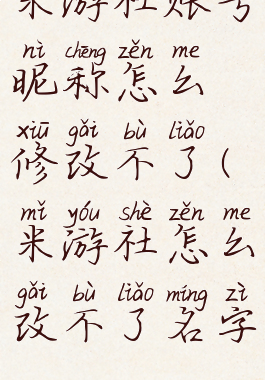 米游社账号
nì chēng zěn me
昵称怎么
xiū gǎi bù liǎo
修改不了(
mǐ yóu shè zěn me
米游社怎么
gǎi bù liǎo míng zì
改不了名字